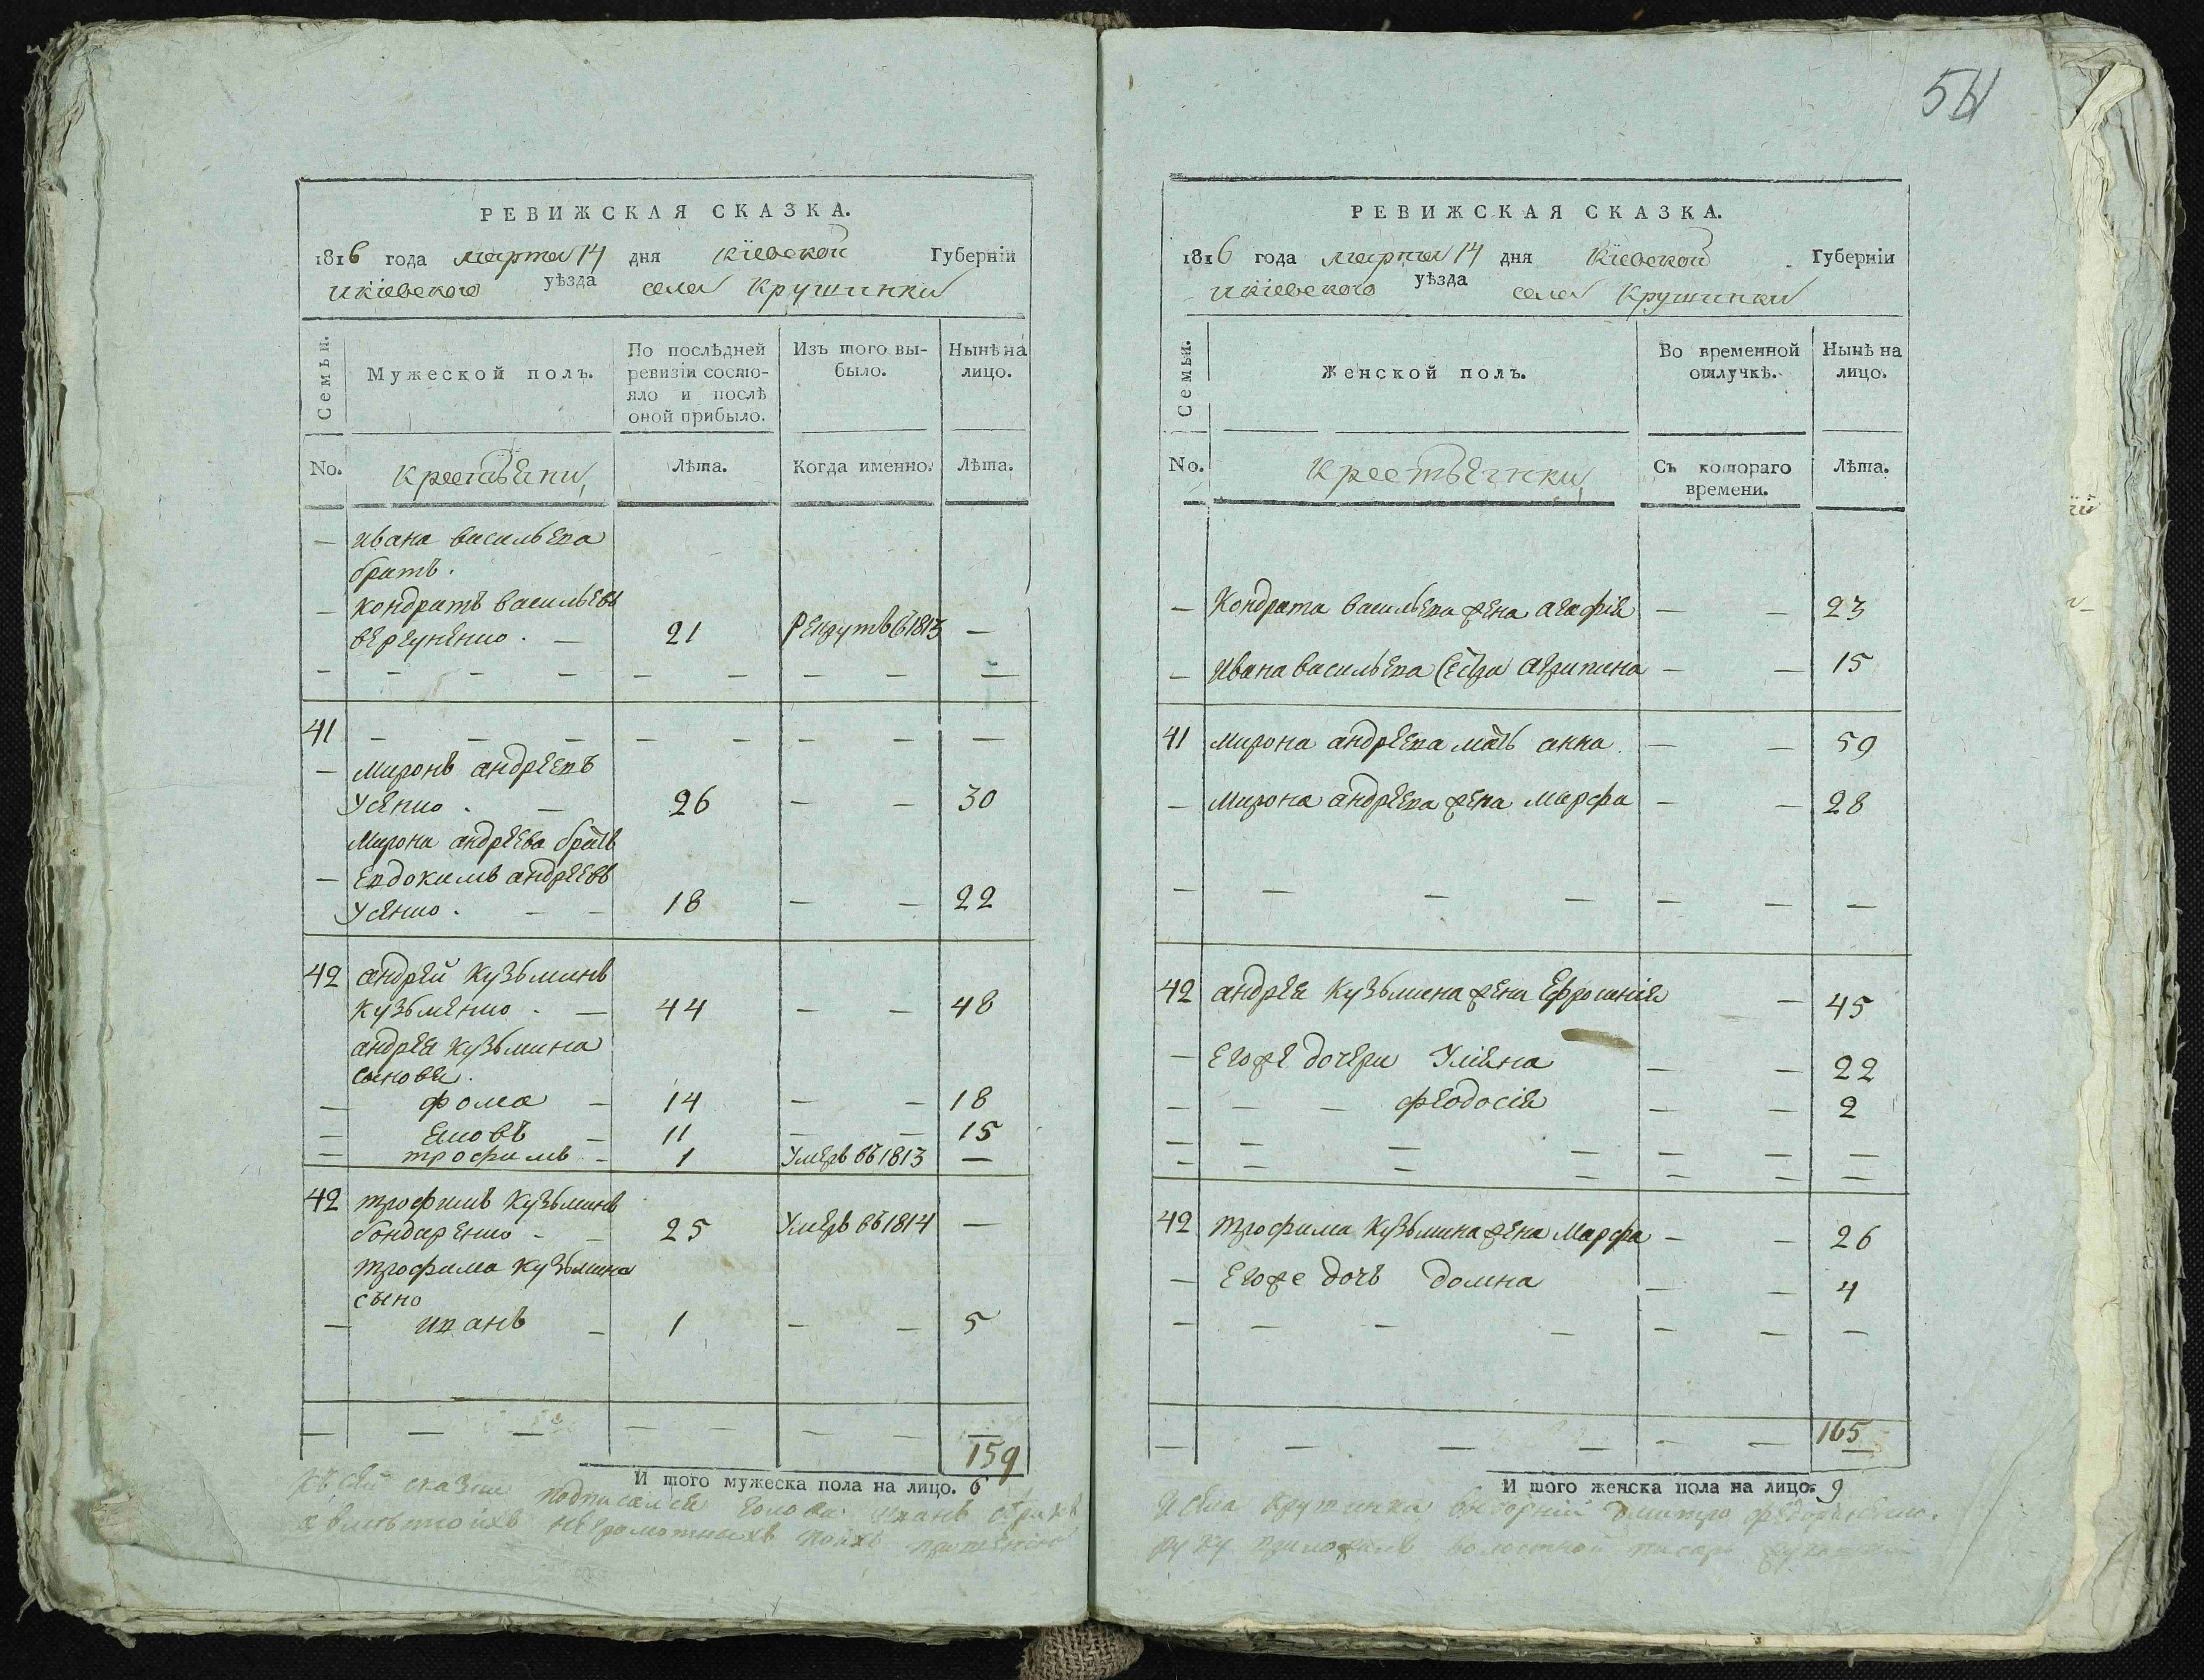 54
РЕВИЖСКАЯ СКАЗКА.
1816 года марта 14 дня Кіевской Губерніи
Икіевского уѣзда села Крушинки
Семьи.
Мужеской полъ.
По послѣдней ревизіи состо-
яло и послѣ
оной прибыло.
Изъ того вы-
было.
Нынѣ на
лицо.
No.
Крестьяни
Лѣта.
Когда именно.
Лѣта.
— Ивана васильева
братъ.
— Кондратъ васильевъ
— 21 Рекрутъ въ 1813 —
— — — — — — — — —
41 — — — — — — — —
— Миронъ андреевъ
Усенко . — 26 — — 30
Мирона андреева братъ
— Евдокимъ андреевъ
Усенко . — — 18 — — 22
42 андрей Кузьминъ
Кузьменко . — 44 — — 48
андрея Кузьмина
сыновя.
— фома — 14 — — 18
— Яковъ — 11 — — 15
— трофимъ — 1 Умеръ въ 1813 —
42 трофимъ Кузьминъ
бондаренко — — 25 Умеръ въ 1814 —
трофима Кузьмина
сынъ
— иванъ — 1 — — 5
— — — — — — — —
159
И того мужеска пола на лицо. 6
сказки подписался голова иванъ
неграмотныхъ
РЕВИЖСКАЯ СКАЗКА.
1816 года марта 14 дня Кіевской Губерніи
Икіевского уѣзда села Крушинки
Семьи.
Женской полъ.
Во временной
отлучкѣ.
Нынѣ на
лицо.
No.
Крестьянки
Съ котораго
времени.
Лѣта.
— Кондрата васильева жена агафія — — 23
— Ивана васильева сестра агрипина — — 15
41 Мирона андреева мать анна — — 59
— Мирона андреева жена марфа — — 28
— — — — — — —
42 андрея Кузьмина жена Ефросинія — 45
— Егоже дочери Уліяна — — 22
— — — феодосія — — 2
— — — — — — —
— — — — — — —
42 трофима Кузьмина жена Марфа — — 26
— Егоже дочь домна — — 4
— — — — — — —
— — — — — —
165
И того женска пола на лицо. 9
села Крушинки выборній дмитро
руку приложилъ волостной писарь